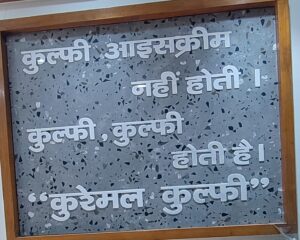 कुल्फी आइसक्रीम
नहीं होती ।
कुल्फी , कुल्फी
होती है।
“कुश्मल कुल्फी”